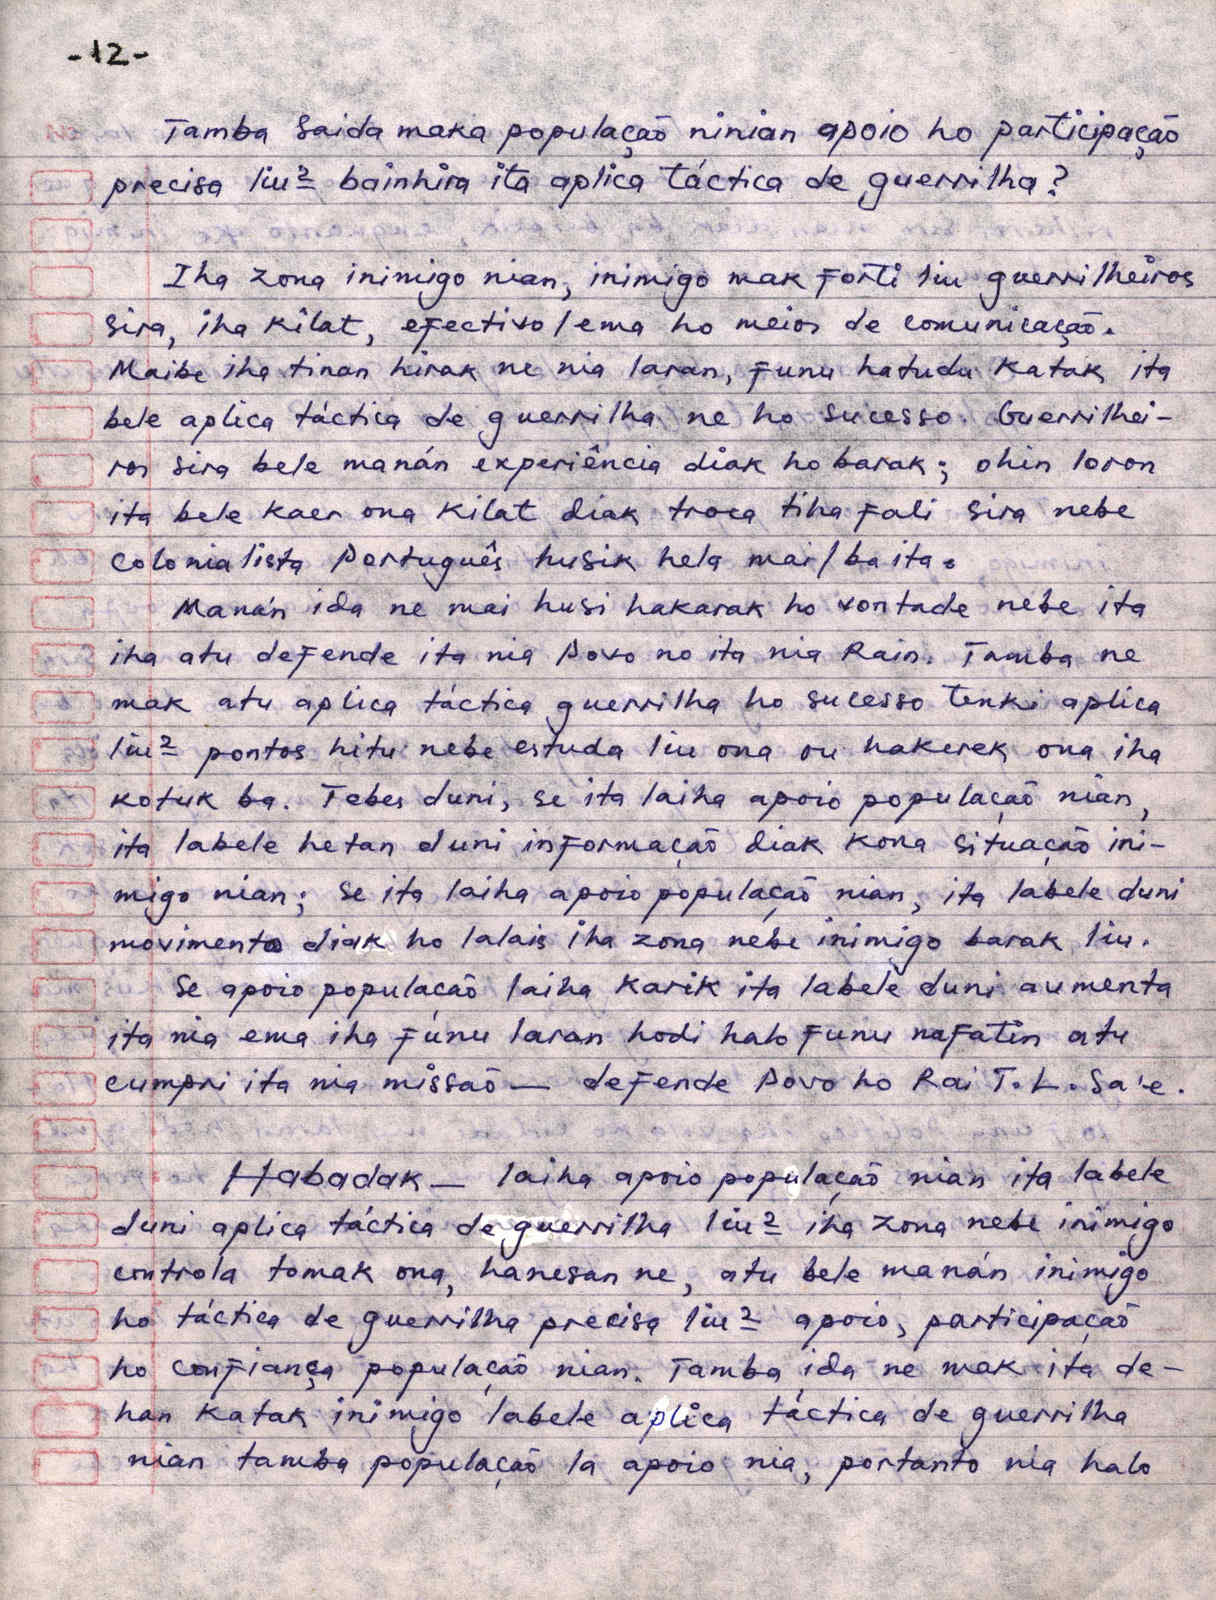 -12-
Tamba Saida maka populaçaõ ninian apoio ho participaçaõ
precisa liu² bainhira ita aplica táctica de guerrilha?
Iha zona inimigo nian, inimigo mak forti liu guerrilheiros
sira, iha kilat, efectivo/ema ho meios de comunicaçaõ.
Maibe iha tinan hirak ne nia laran, funu hatudu katak ita
bele aplica táctica de guerrilha ne ho sucesso. Guerrilhei-
ros sira bele manán experiência diak ho barak; ohin loron
ita bele kaer ona kilat diak troca tiha fali sira nebe
colonialista Português husik hela mai/ba ita.
Manán ida ne mai husi hakarak ho vontade nebe ita
iha atu defende ita nia Povo no ita nia Rain. Tamba ne
mak atu aplica táctica guerrilha ho sucesso tenki aplica
liu² pontos hitu nebe estuda liu ona ou hakerek ona iha
kotuk ba. Tebes duni, se ita laiha apoio populaçaõ nian,
ita labele hetan duni informaçaõ diak kona situaçaõ ini-
migo nian; se ita laiha apoio populaçaõ nian, ita labele duni
movimento diak ho lalais iha zona nebe inimigo barak liu.
Se apoio populaçaõ laiha karik ita labele duni aumenta
ita nia ema iha funu laran hodi halo funu nafatin atu
cumpri ita nia missaõ — defende Povo ho Rai T.L. Sa'e.
Habadak — laiha apoio populaçaõ nian ita labele
duni aplica táctica de guerrilha liu² iha zona nebe inimigo
controla tomak ona, hanesan ne, atu bele manán inimigo
ho táctica de guerrilha precisa liu² apoio, participaçaõ
ho confiança populaçaõ nian. Tamba ida ne mak ita de-
han katak inimigo labele aplica táctica de guerrilha
nian tamba populaçaõ la apoio nia, portanto nia halo